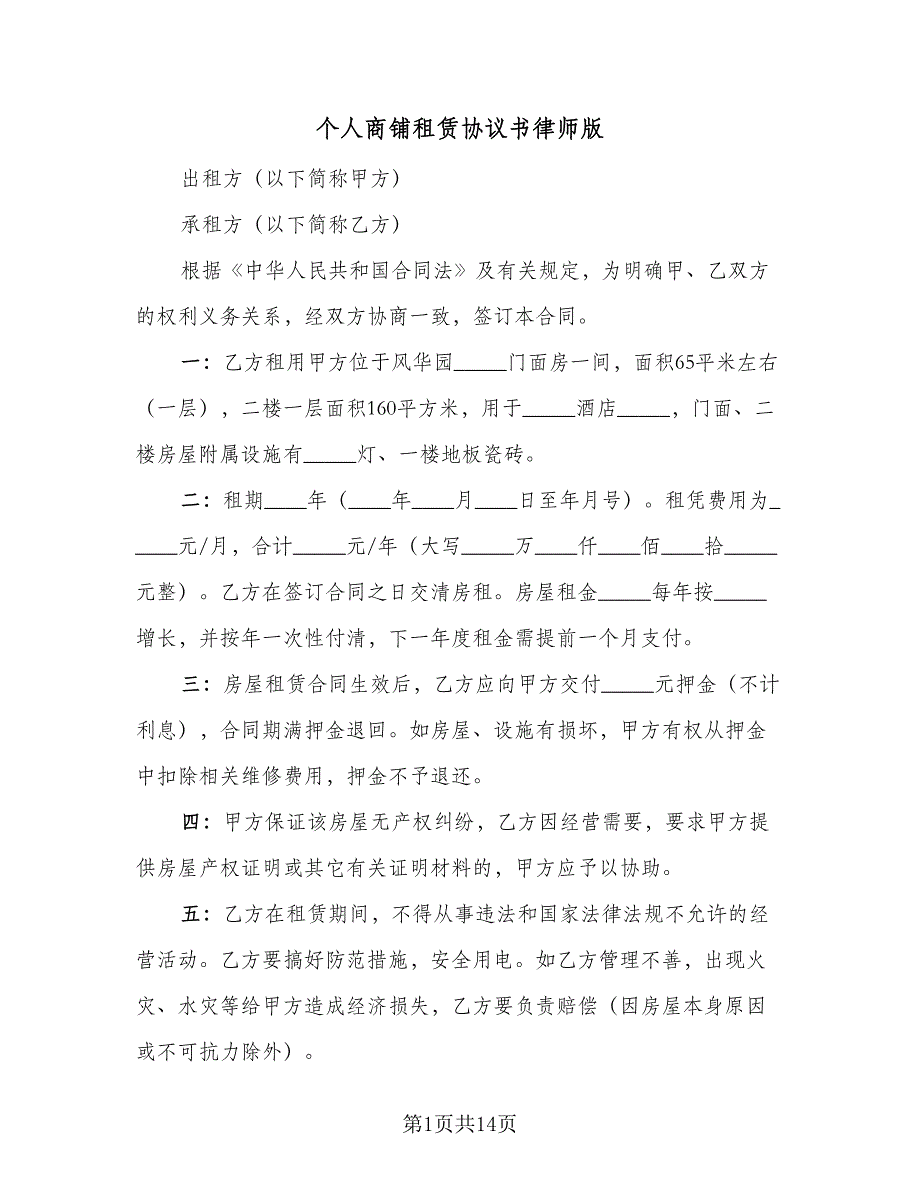 个人商铺租赁协议书律师版
出租方（以下简称甲方）
承租方（以下简称乙方）
根据《中华人民共和国合同法》及有关规定，为明确甲、乙双方
的权利义务关系，经双方协商一致，签订本合同。
一：乙方租用甲方位于风华园_____门面房一间，面积65平米左右
（一层），二楼一层面积160平方米，用于_____酒店_____，门面、二
楼房屋附属设施有_____灯、一楼地板瓷砖。
二：租期____年（____年____月____日至年月号）。租凭费用为_
____元/月，合计_____元/年（大写_____万____仟____佰____拾_____
元整）。乙方在签订合同之日交清房租。房屋租金_____每年按_____
增长，并按年一次性付清，下一年度租金需提前一个月支付。
三：房屋租赁合同生效后，乙方应向甲方交付_____元押金（不计
利息），合同期满押金退回。如房屋、设施有损坏，甲方有权从押金
中扣除相关维修费用，押金不予退还。
四：甲方保证该房屋无产权纠纷，乙方因经营需要，要求甲方提
供房屋产权证明或其它有关证明材料的，甲方应予以协助。
五：乙方在租赁期间，不得从事违法和国家法律法规不允许的经
营活动。乙方要搞好防范措施，安全用电。如乙方管理不善，出现火
灾、水灾等给甲方造成经济损失，乙方要负责赔偿（因房屋本身原因
或不可抗力除外）。
第1页共14页